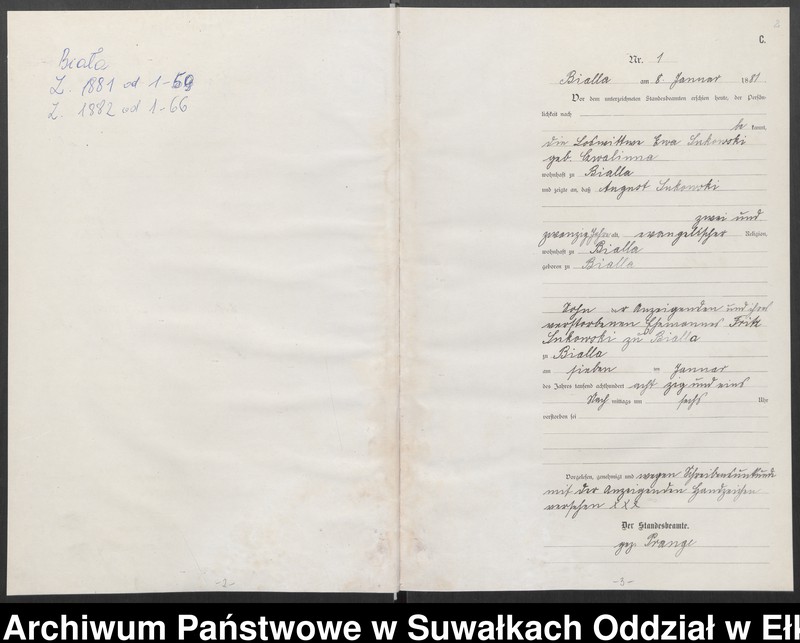 Biała
Z. 1881 od 1-59
Z. 1882 od 1-66
-2-
2
C.
Nr. 1
Bialla am 8. Januar 1881
Vor dem unterzeichneten Standesbeamten erschien heute, der Persön-
lichkeit nach
be kannt,
die Loswittwe Ewa Sukowski
geb.
wohnhaft zu Bialla
und zeigte an, daß August Sukowski
zwei und
zwanzig Jahre alt, evangelischer Religion,
wohnhaft zu Bialla
geboren zu Bialla
Sohn der Anzeigenden und ihres
verstorbenen Ehemannes Fritz
Sukowski zu Bialla
zu Bialla
am sieben ten Januar
des Jahres tausend achthundert acht zig und eins
Nach mittags um sechs Uhr
verstorben sei
Vorgelesen, genehmigt und wegen Schreibensunkunde
mit der Anzeigenden Handzeichen
versehen XXX
Der Standesbeamte.
gez. Prange
-3-
Archiwum Państwowe w Suwałkach Oddział w Eł